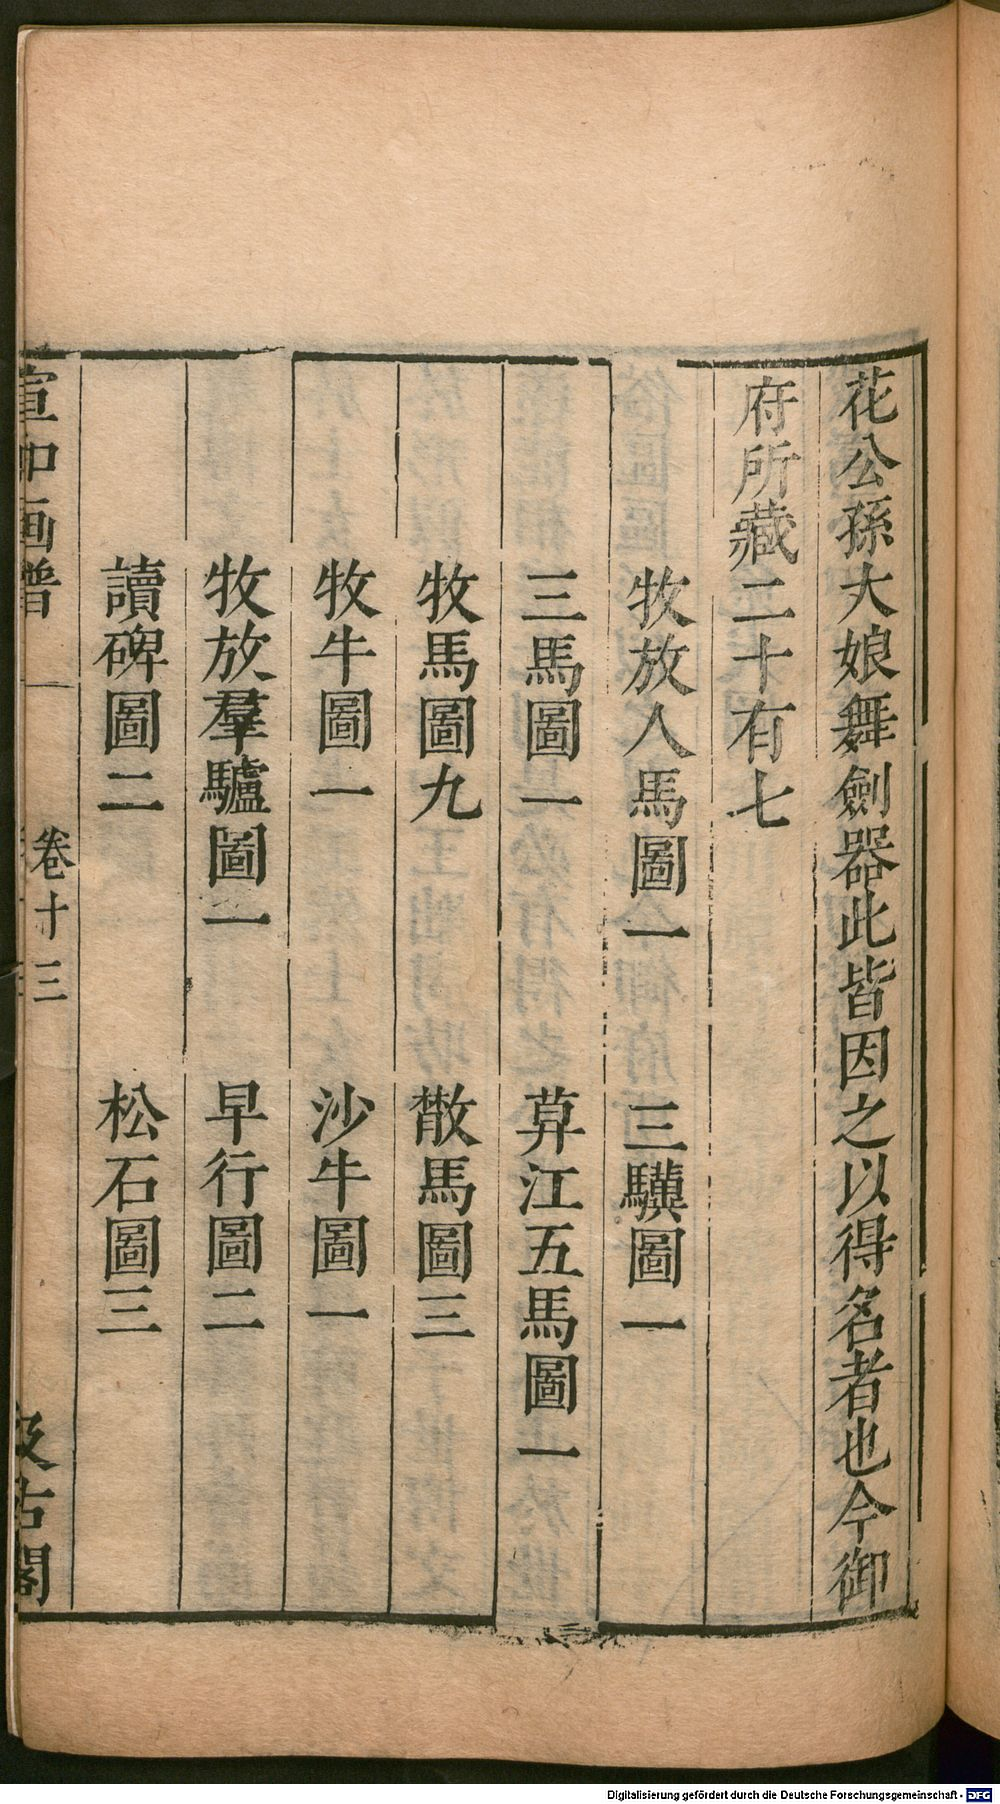 花公孫大娘舞劍器此皆因之以得名者也今御
府所藏二十有七
牧放人馬圖一　三驥圖一
三馬圖一　葬江五馬圖一
牧馬圖九　散馬圖三
牧牛圖一　沙牛圖一
牧放羣驢圖一　早行圖二
讀碑圖二　松石圖三
宣和画譜　卷十三　汲古閣
Digitalisierung gefördert durch die Deutsche Forschungsgemeinschaft - DFG